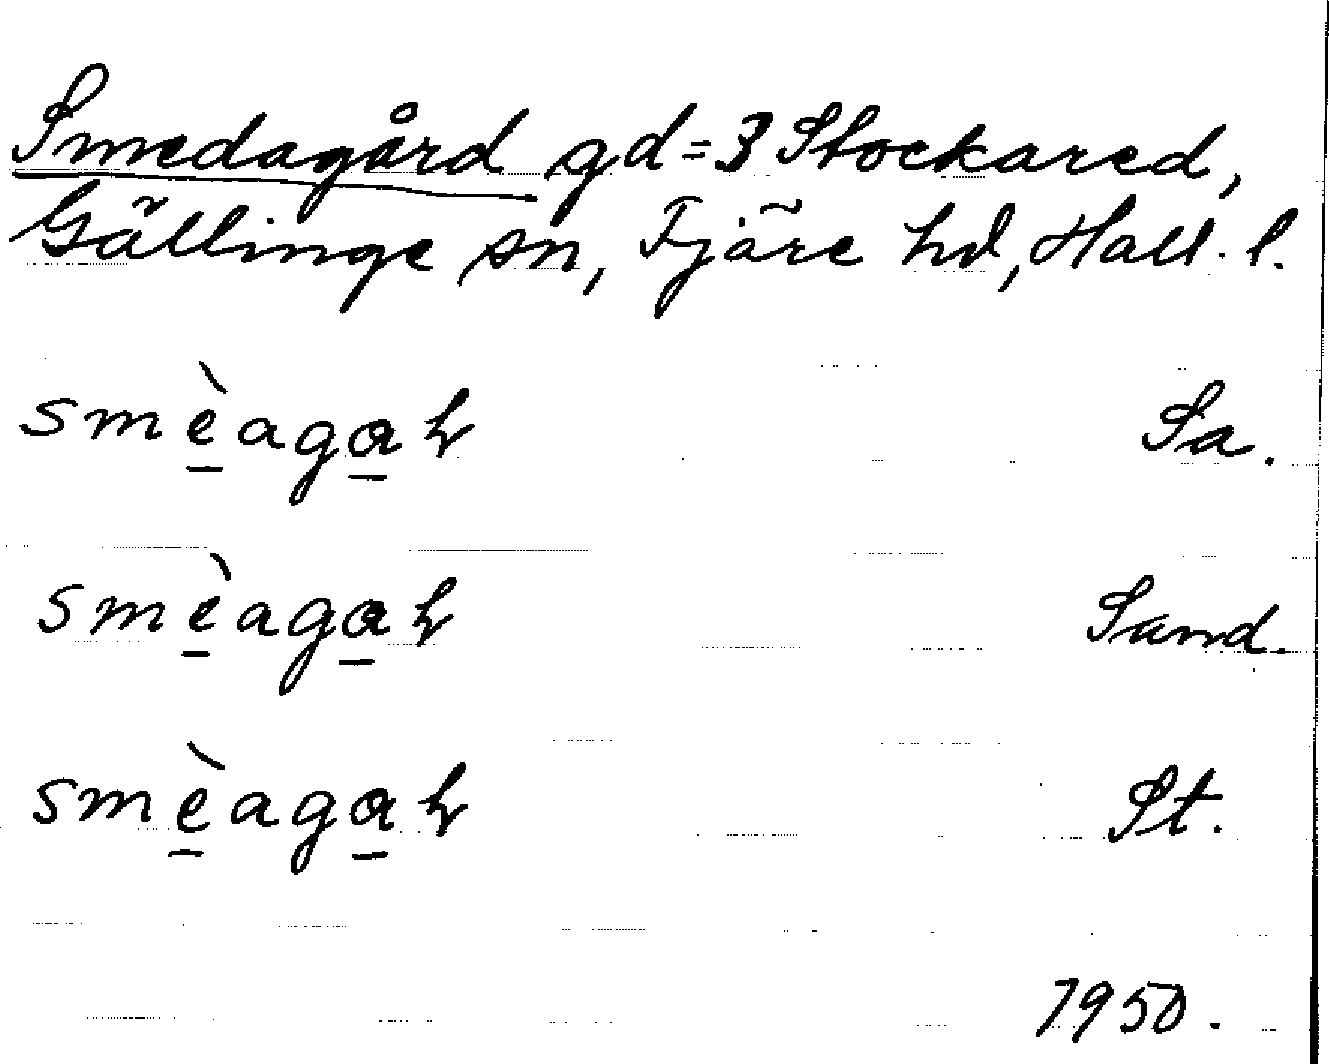 Smedagård gd=3 Stockared,
Gällinge sn, Fjäre hd, Hall. l.
smèagar Sa.
smèagar Sand.
smèagar St.
1950.